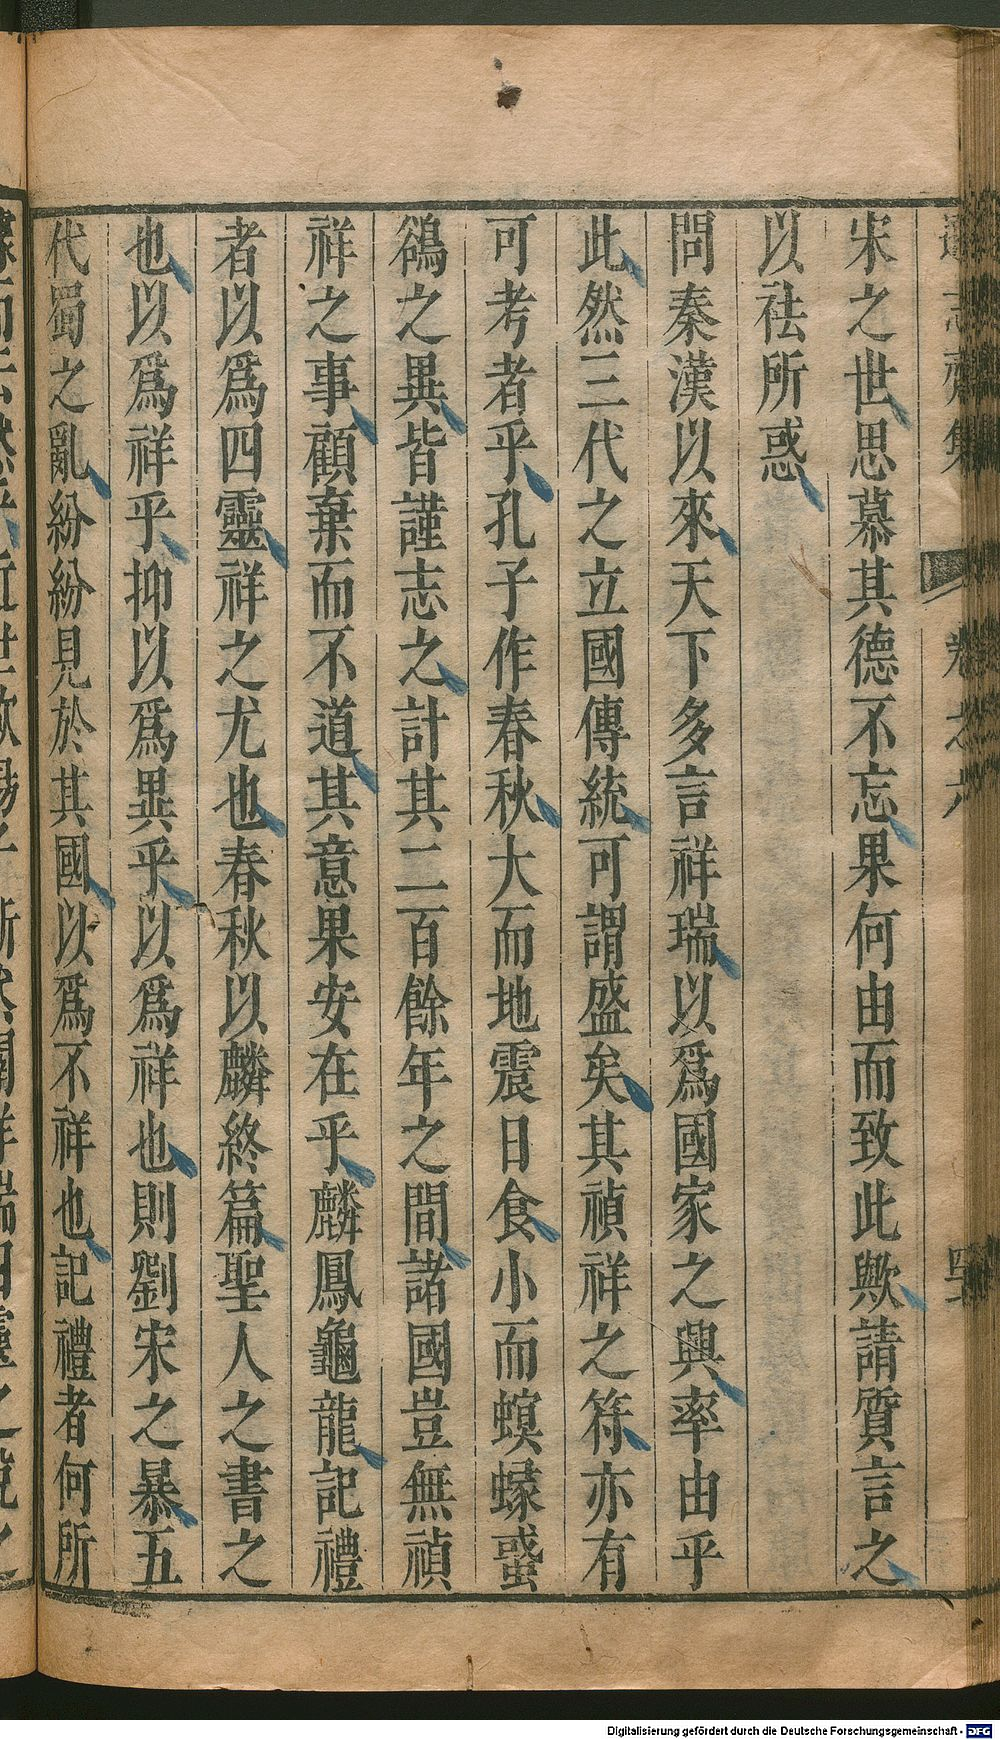 宋之世思慕其德不忘果何由而致此歟請質言之
以祛所惑
問秦漢以來天下多言祥瑞以爲國家之興率由乎
此然三代之立國傳統可謂盛矣其禎祥之符亦有
可考者乎孔子作春秋大而地震日食小而螟蝝蜚
鵒之異皆謹志之計其二百餘年之間諸國豈無禎
祥之事顧棄而不道其意果安在乎麟鳳龜龍記禮
者以爲四靈祥之尤也春秋以麟終篇聖人之書之
也以爲祥乎抑以爲異乎以爲祥也則劉宋之暴五
代蜀之亂紛紛見於其國以爲不祥也記禮者何所
Digitalisierung gefördert durch die Deutsche Forschungsgemeinschaft - DFG